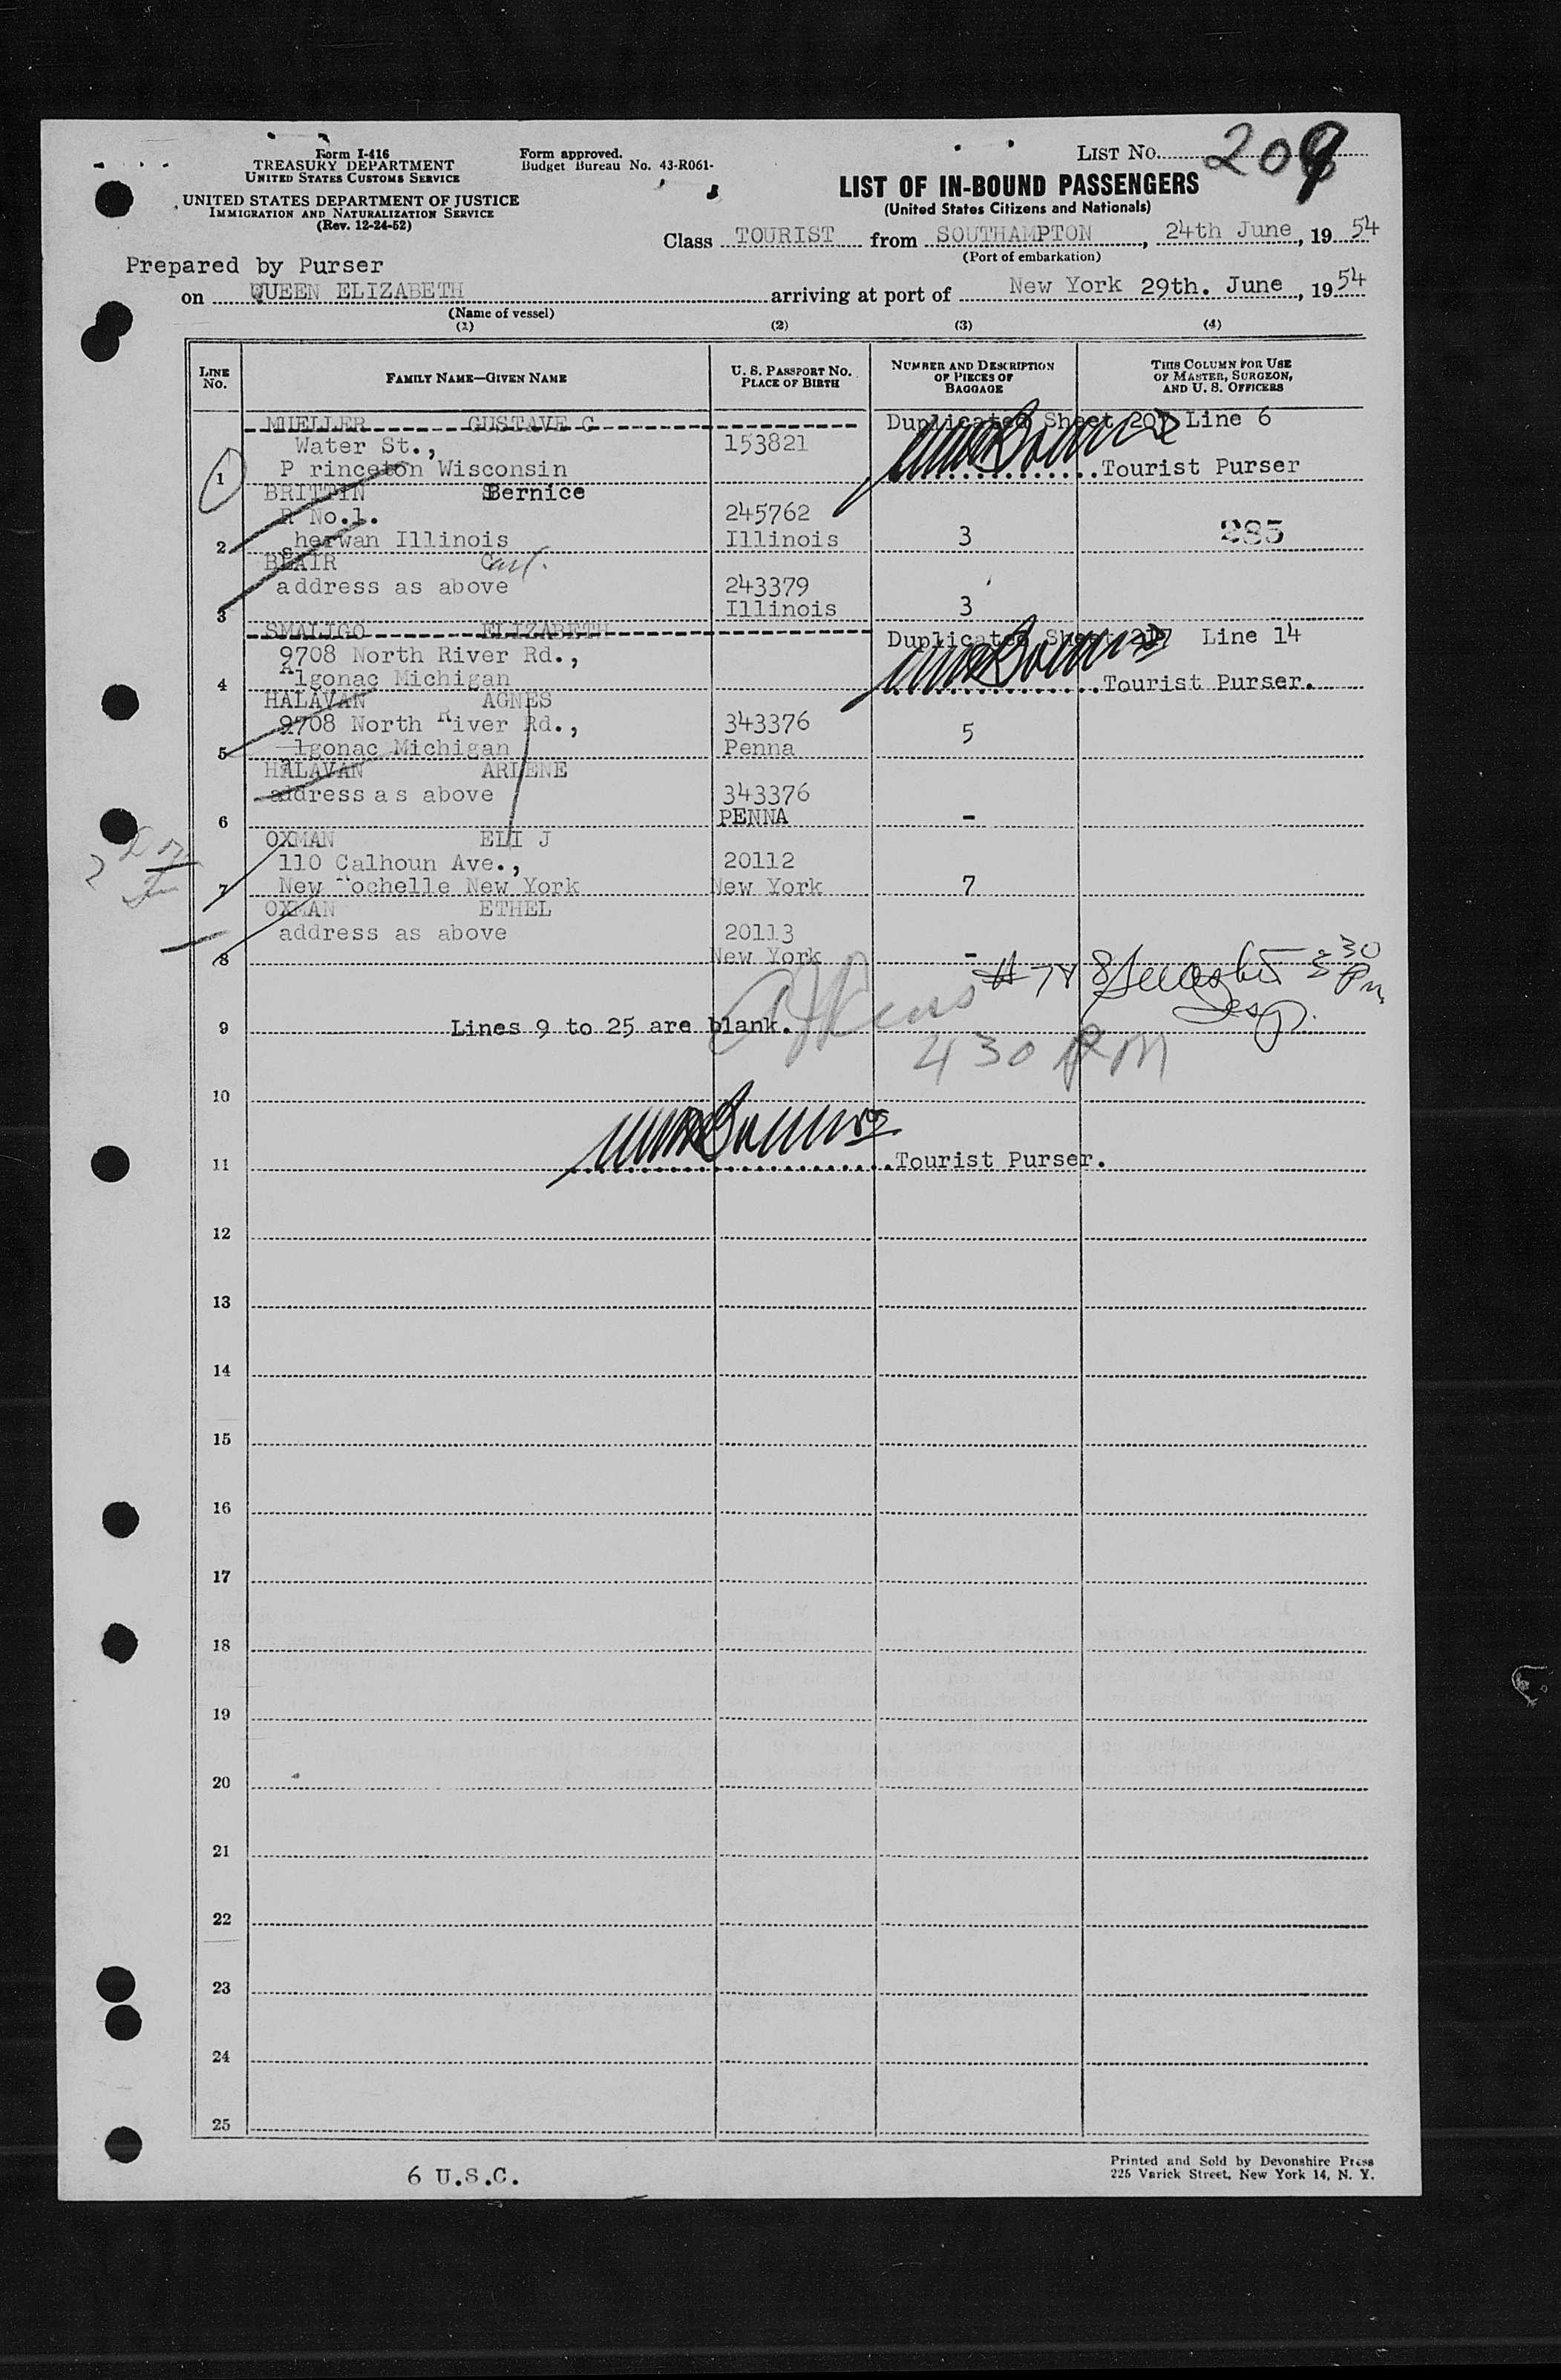 Form I-416
TREASURY DEPARTMENT
UNITED STATES CUSTOMS SERVICE
UNITED STATES DEPARTMENT OF JUSTICE
IMMIGRATION AND NATURALIZATION SERVICE
(Rev. 12-24-52)
Form approved.
Budget Bureau No. 43-R061-
LIST NO. 209
LIST OF IN-BOUND PASSENGERS
(United States Citizens and Nationals)
Class TOURIST from SOUTHAMPTON, 24th June, 19 54
(Port of embarkation)
Prepared by Purser
on QUEEN ELIZABETH arriving at port of New York 29th. June, 19 54
(Name of vessel)
(1) (2) (3) (4)
LINE NO. FAMILY NAME—GIVEN NAME U. S. PASSPORT NO. PLACE OF BIRTH NUMBER AND DESCRIPTION OF PIECES OF BAGGAGE THIS COLUMN FOR USE OF MASTER, SURGEON, AND U. S. OFFICERS
MUELLER GUSTAVE G Duplicated Sheet Line 6
Water St., 153821
1 P rinceton Wisconsin Tourist Purser
BRITTIN Bernice
R No.1. 245762
2 sherwan Illinois Illinois 3 285
BLAIR Carl.
address as above 243379
3 Illinois 3
SMALIGO ELIZABETH Duplicated Sheet Line 14
9708 North River Rd.,
4 Algonac Michigan Tourist Purser.
HALAVAN AGNES
9708 North River Rd., 343376
5 lgonac Michigan Penna 5
HALAVAN ARLENE
address a s above 343376
6 PENNA -
OXMAN ELI J
110 Calhoun Ave., 20112
7 New Rochelle New York New York 7
OXMAN ETHEL
address as above 20113
8 New York -
# 7 & 8 5 30 Pm
Insp.
9 Lines 9 to 25 are blank.
4 30 PM
10
11 Tourist Purser.
12
13
14
15
16
17
18
19
20
21
22
23
24
25
6 U.S.C.
Printed and Sold by Devonshire Press
225 Varick Street, New York 14, N. Y.